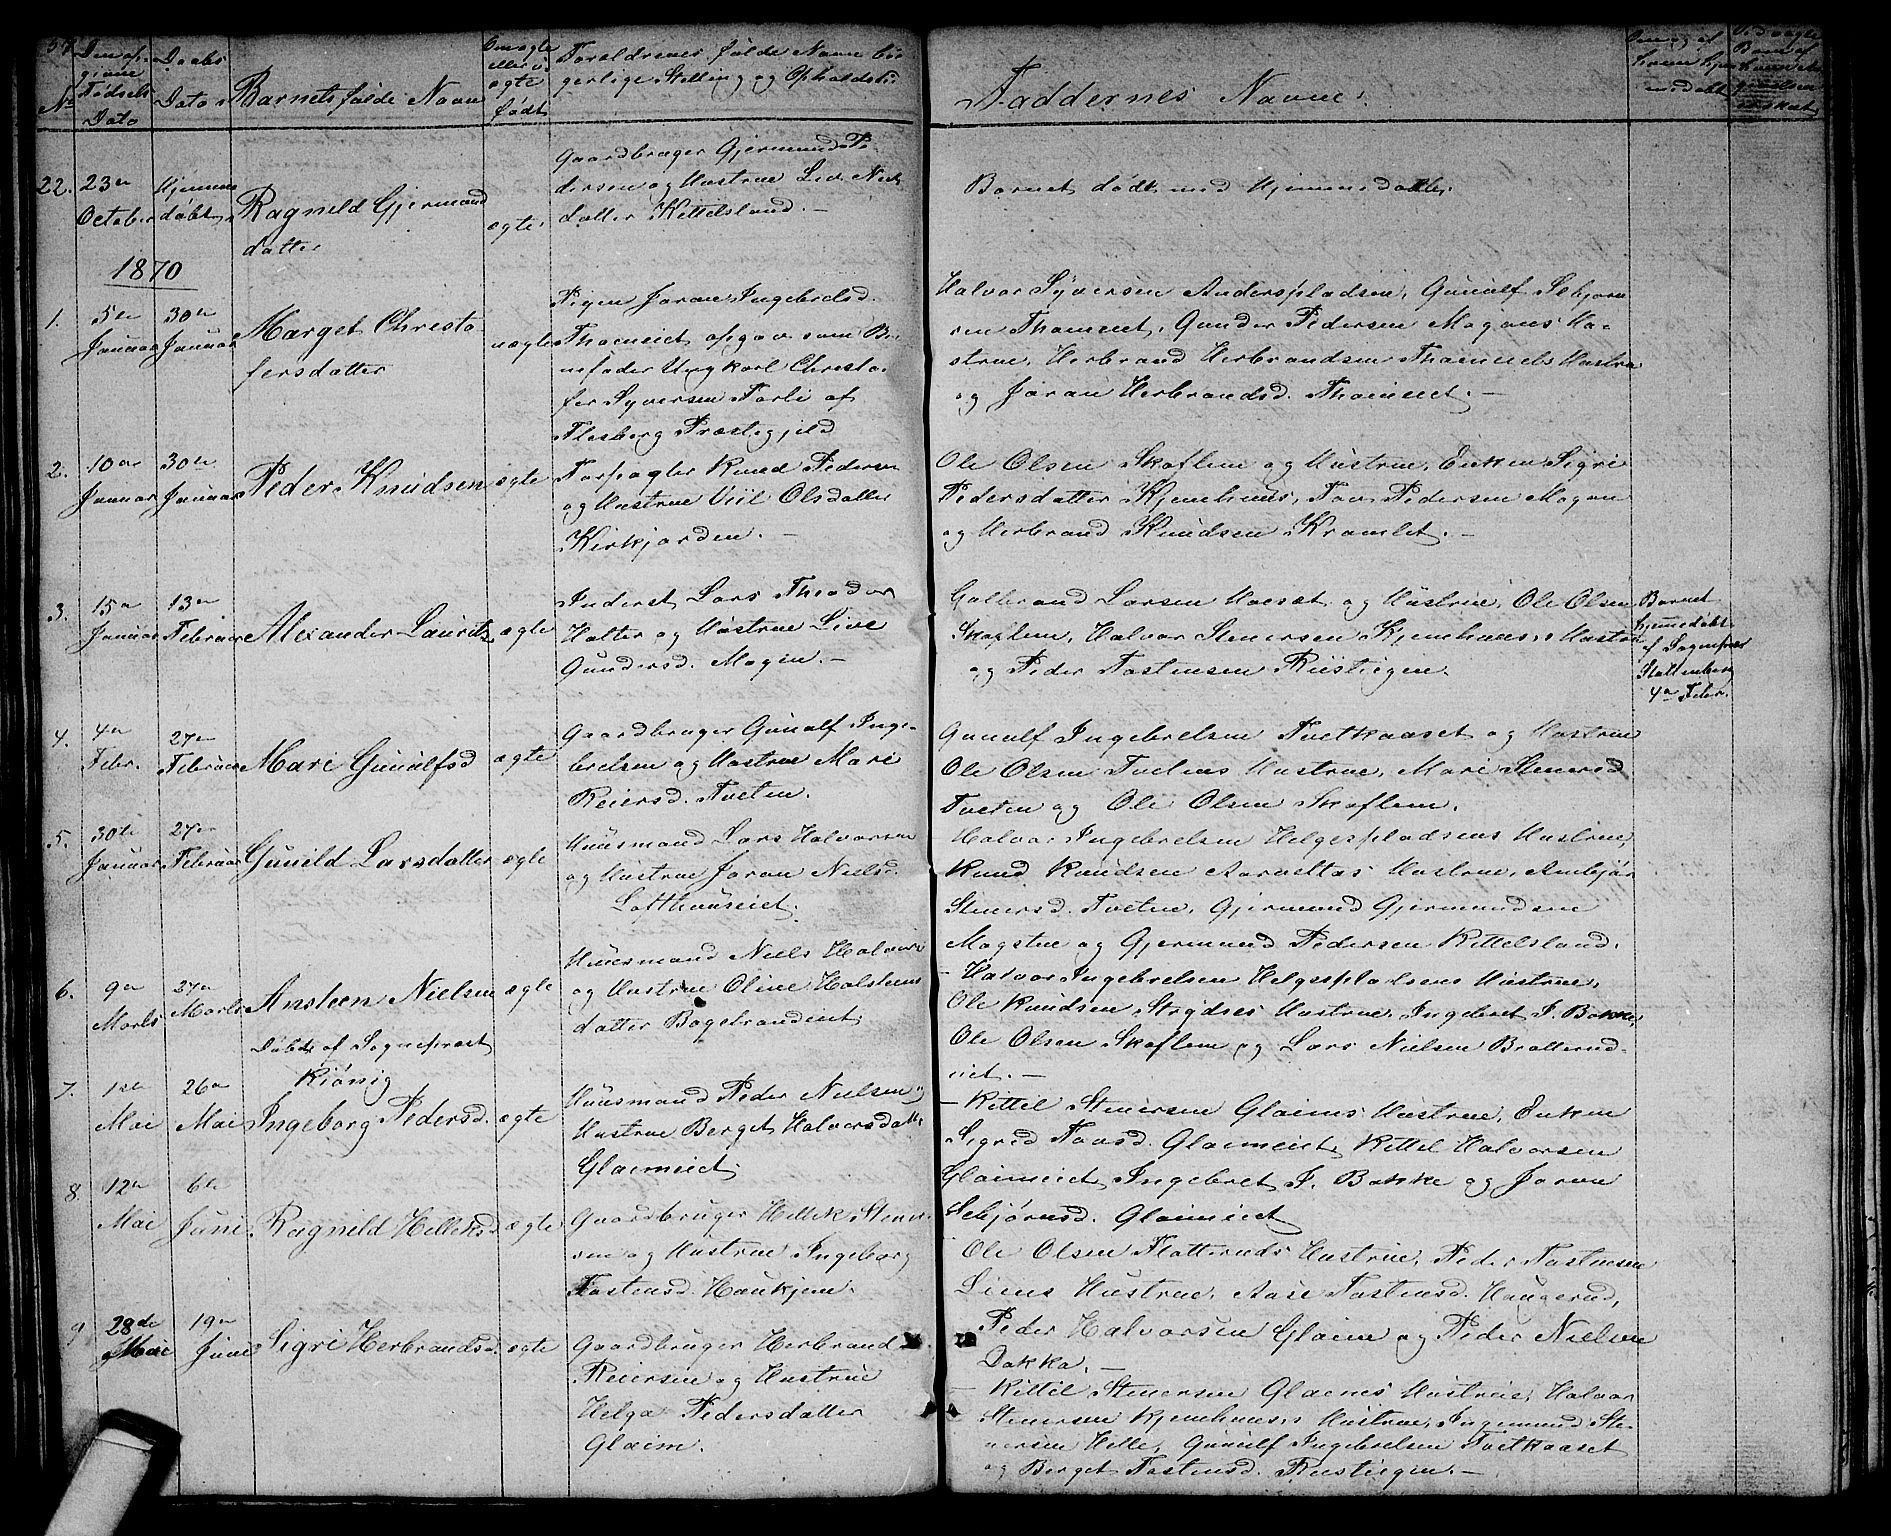 Den op-
givne
Fødsels
Dato
No
Daabs
Dato
Barnets fulde Navn
Om ægte
eller u-
ægte
født
Forældrenes fulde Navn bor-
gerlige Stilling og Opholdsst:
Faddernes Navne.
22.
23de
October
Hjemme
døbt
Ragnild Gjermund
datter
ægte.
Gaardbruger Gjermund Pe-
dersen og Hustrue Liv Niels
datter Kittelsland. —
Barnet dødt med Hjemmedaab.
1870
1.
5te
Januar
30te
Januar
Marget Christo
fersdatter
uægte
Pigen Jøran Ingebrelsd.
opgav som Ba-
nefader Ungkarl Christo-
fer Syversen Forli af
Flesberg Præstegjeld
Halvor Syversen Anderspladsen, Gunulf Sebjørn
sen Thomeiet, Gunder Pedersen Mogans Hu-
strue, Herbrand Herbrandsen Hustru
og Jøran Herbrandsd. —
2.
10de
Januar
30te
Januar
Peder Knudsen
ægte
Forpagter Knud Pedersen
og Hustrue Viil Olsdatter
Kirkjorden. —
Ole Olsen Skoflem og Hustrue, Enken Sigri
Pedersdatter Kjemhuus, Tov Pedersen Mogan
og Herbrand Knudsen Kramlet. —
3.
15de
Januar
13de
Februar
Alexander Laurits
ægte
Inderst Lars Theodor
Holter og Hustrue Live
Gundersd. Mogen. —
Golbrand Larsen og Hustrue, Ole Olsen
Skoflem, Halvor Stenersen Kjemhuus, Hustru
og Peder Tostensen Rustiigen.
Barnet
hjemmedøbt
af Sognepræst
4de Febr.
4.
4de
Febr.
27de
Februar
Mari Gunulfsd
ægte
Gaardbruger Gunulf Inge-
brelsen og Hustrue Mari
Reiersd. Tveten.
Gunulf Ingebrelsen Tvetkaaset og Hustrue
Ole Olsen Tvetens Hustrue, Mari Stenersd
Tveten og Ole Olsen Skoflem.
5.
30te
Januar
27de
Februar
Gunild Larsdatter
ægte
Huusmand Lars Halvorsen
og Hustrue Jøran Nielsd.
Lofthuuseiet.
Halvor Ingebrelsen Helgespladsens Hustrue,
Knud Knudsen Hustrue, Ambjør
Stenersd. Tveten, Gjermund Gjermundsen
Mogstue og Gjermund Pedersen Kittelsland.
6.
9de
Marts
27de
Marts
Ansteen Nielsen
Døbt af Sognepræst
Kiønig
ægte
Huusmand Niels Halvors
og Hustrue Oline Halstens
datter
— Halvor Ingebrelsen Helgespladsens Hustrue,
Ole Knudsen Hustrue, Ingebret J. Bakke,
Ole Olsen Skoflem og Lars Nielsen Bratterud-
eiet. —
7.
1ste
Mai
26de
Mai
Ingeborg Pedersd.
ægte
Huusmand Peder Nielsen
Hustrue Berget Halvorsdatt:
Glaimeiet.
— Kittil Stenersen Glaims Hustrue, Enken
Sigrid Tovsd. Glaimeiet, Kittel Halvorsen
Glaimeiet, Ingebret J. Bakke og Jøran
Sebjørnsd. Glaimeiet
8.
12te
Mai
6te
Juni
Ragnild Helleksd
ægte
Gaardbruger Hellek Stener-
sen og Hustrue Ingeborg
Tostensd. Haukjem.
Ole Olsen Flatteruds Hustrue, Peder Tostensen
Liens Hustrue, Aase Tostensd. Haugerud,
Peder Halvorsen Glaim og Peder Nielsen
Dokka. —
9
28de
Mai
19de
June
Sigri Herbrandsd.
ægte
Gaardbruger Herbrand
Reiersen og Hustrue
Helga Pedersdatter
Glaim.
— Kittil Stenersen Glaims Hustrue, Halvor
Stenersen Kjemhuus, Hustrue, Ingemund Ste-
nersen Helle, Gunulf Ingebrelsen Tvetkaaset
og Berget Tostensd. Rustiigen. —